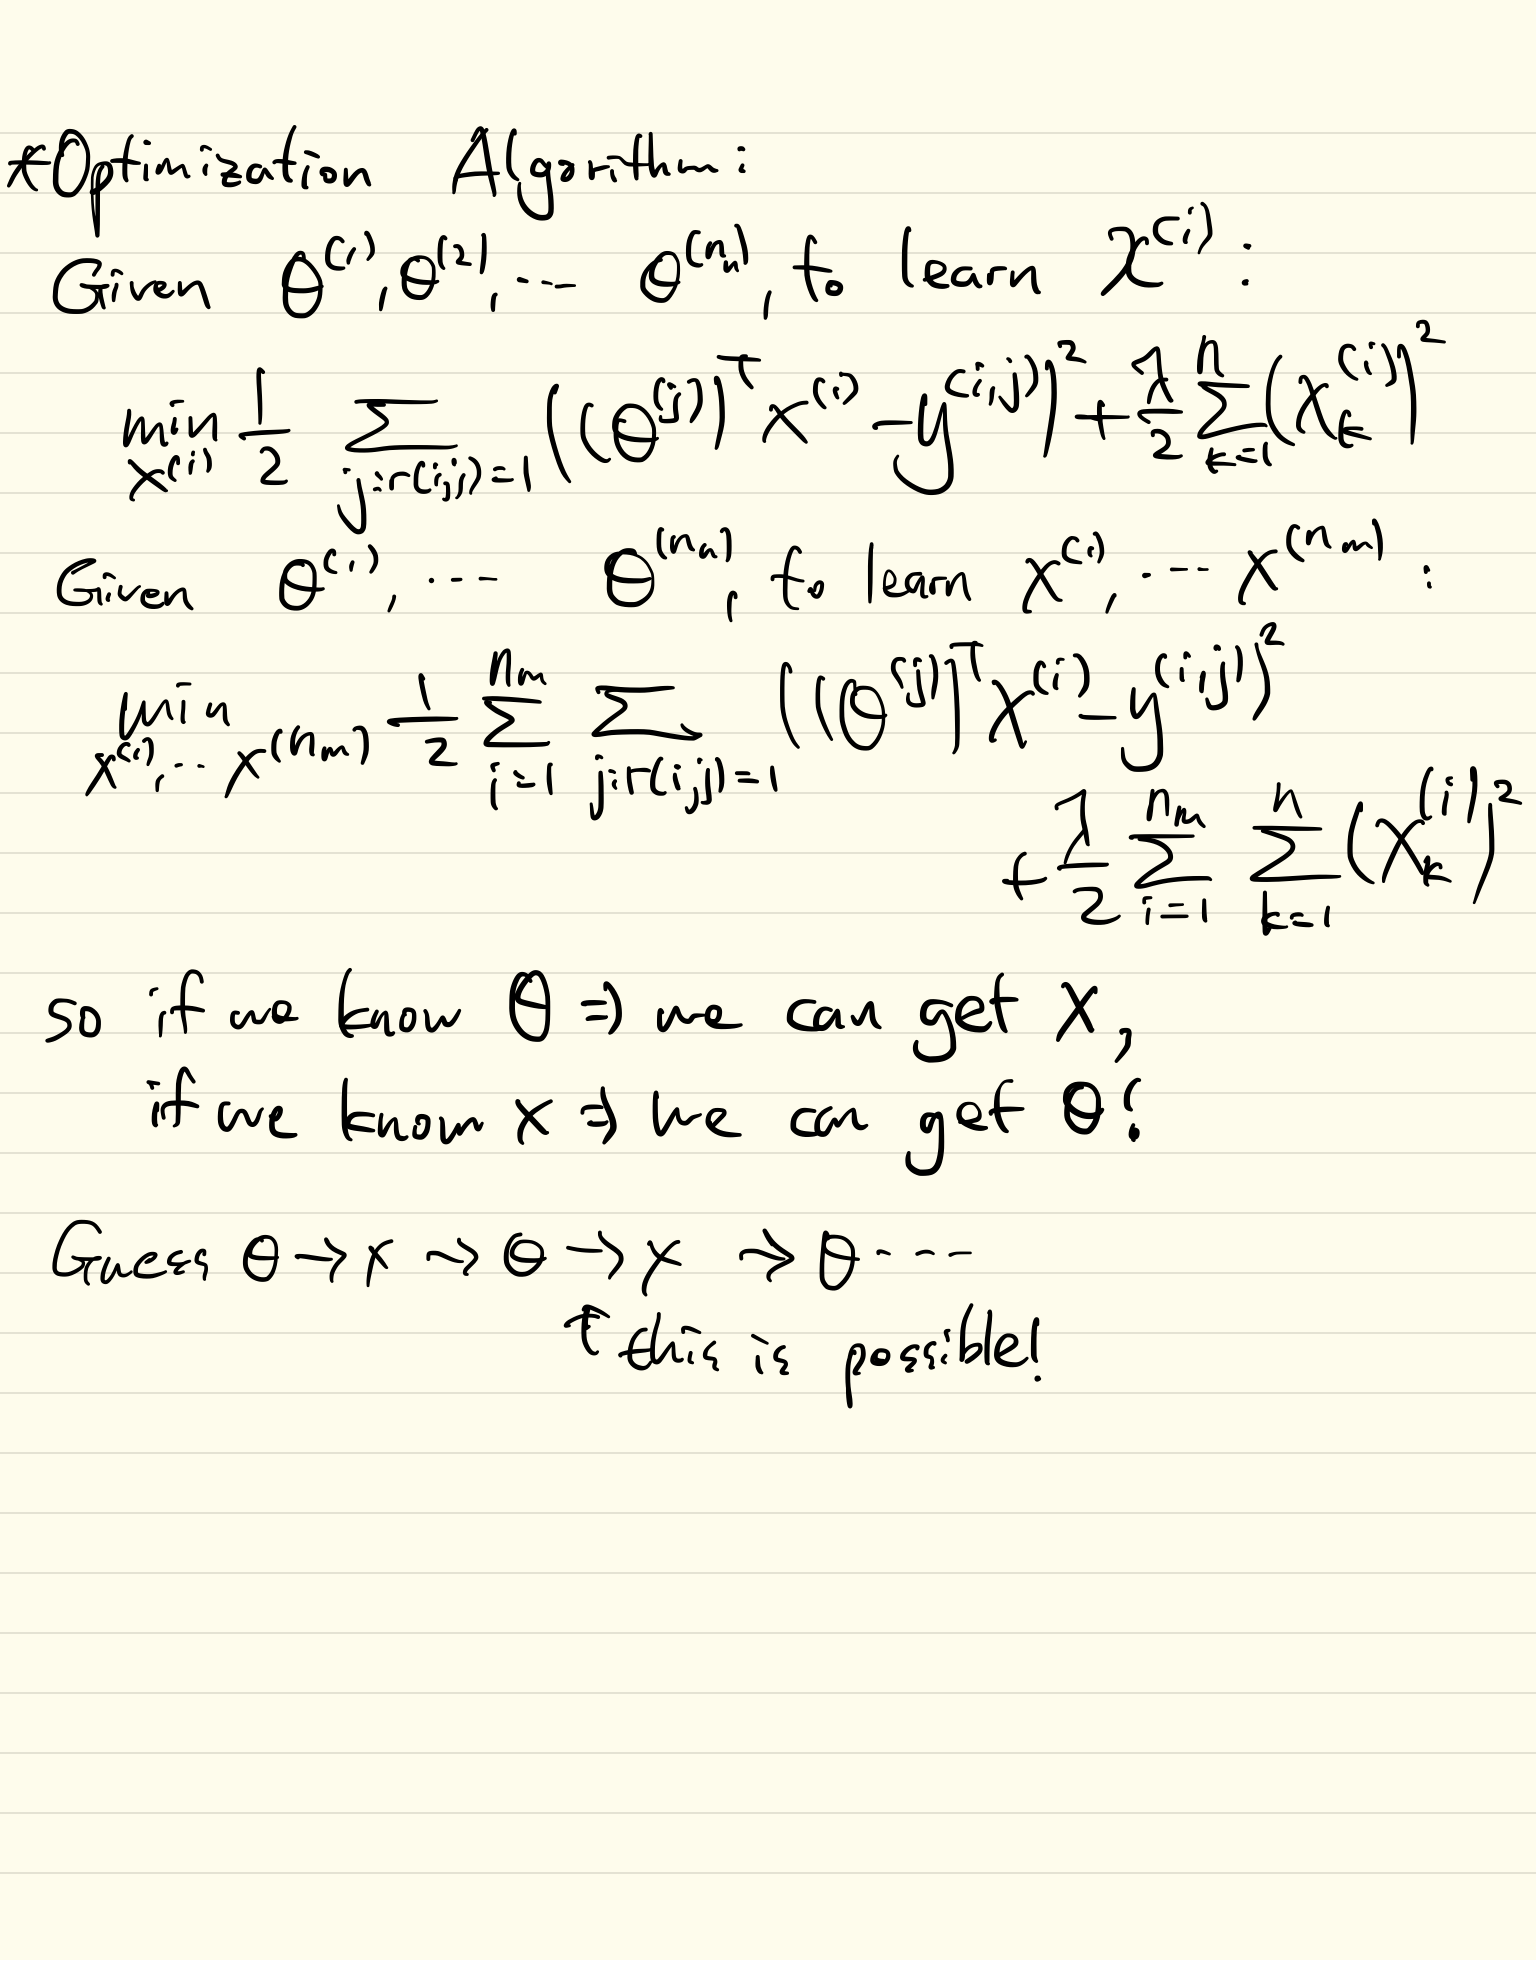 *Optimization Algorithm:
Given θ^(1), θ^(2), ... θ^(n_u), to learn x^(i):
min_{x^(i)} 1/2 Σ_{j:r(i,j)=1} ((θ^(j))^T x^(i) - y^(i,j))^2 + λ/2 Σ_{k=1}^{n} (x_k^(i))^2
Given θ^(1), ... θ^(n_u), to learn x^(1), ... x^(n_m):
min_{x^(1), ... x^(n_m)} 1/2 Σ_{i=1}^{n_m} Σ_{j:r(i,j)=1} ((θ^(j))^T x^(i) - y^(i,j))^2
+ λ/2 Σ_{i=1}^{n_m} Σ_{k=1}^{n} (x_k^(i))^2
so if we know θ ⇒ we can get x,
if we know x ⇒ we can get θ!
Guess θ → x → θ → x → θ ...
↑ this is possible!